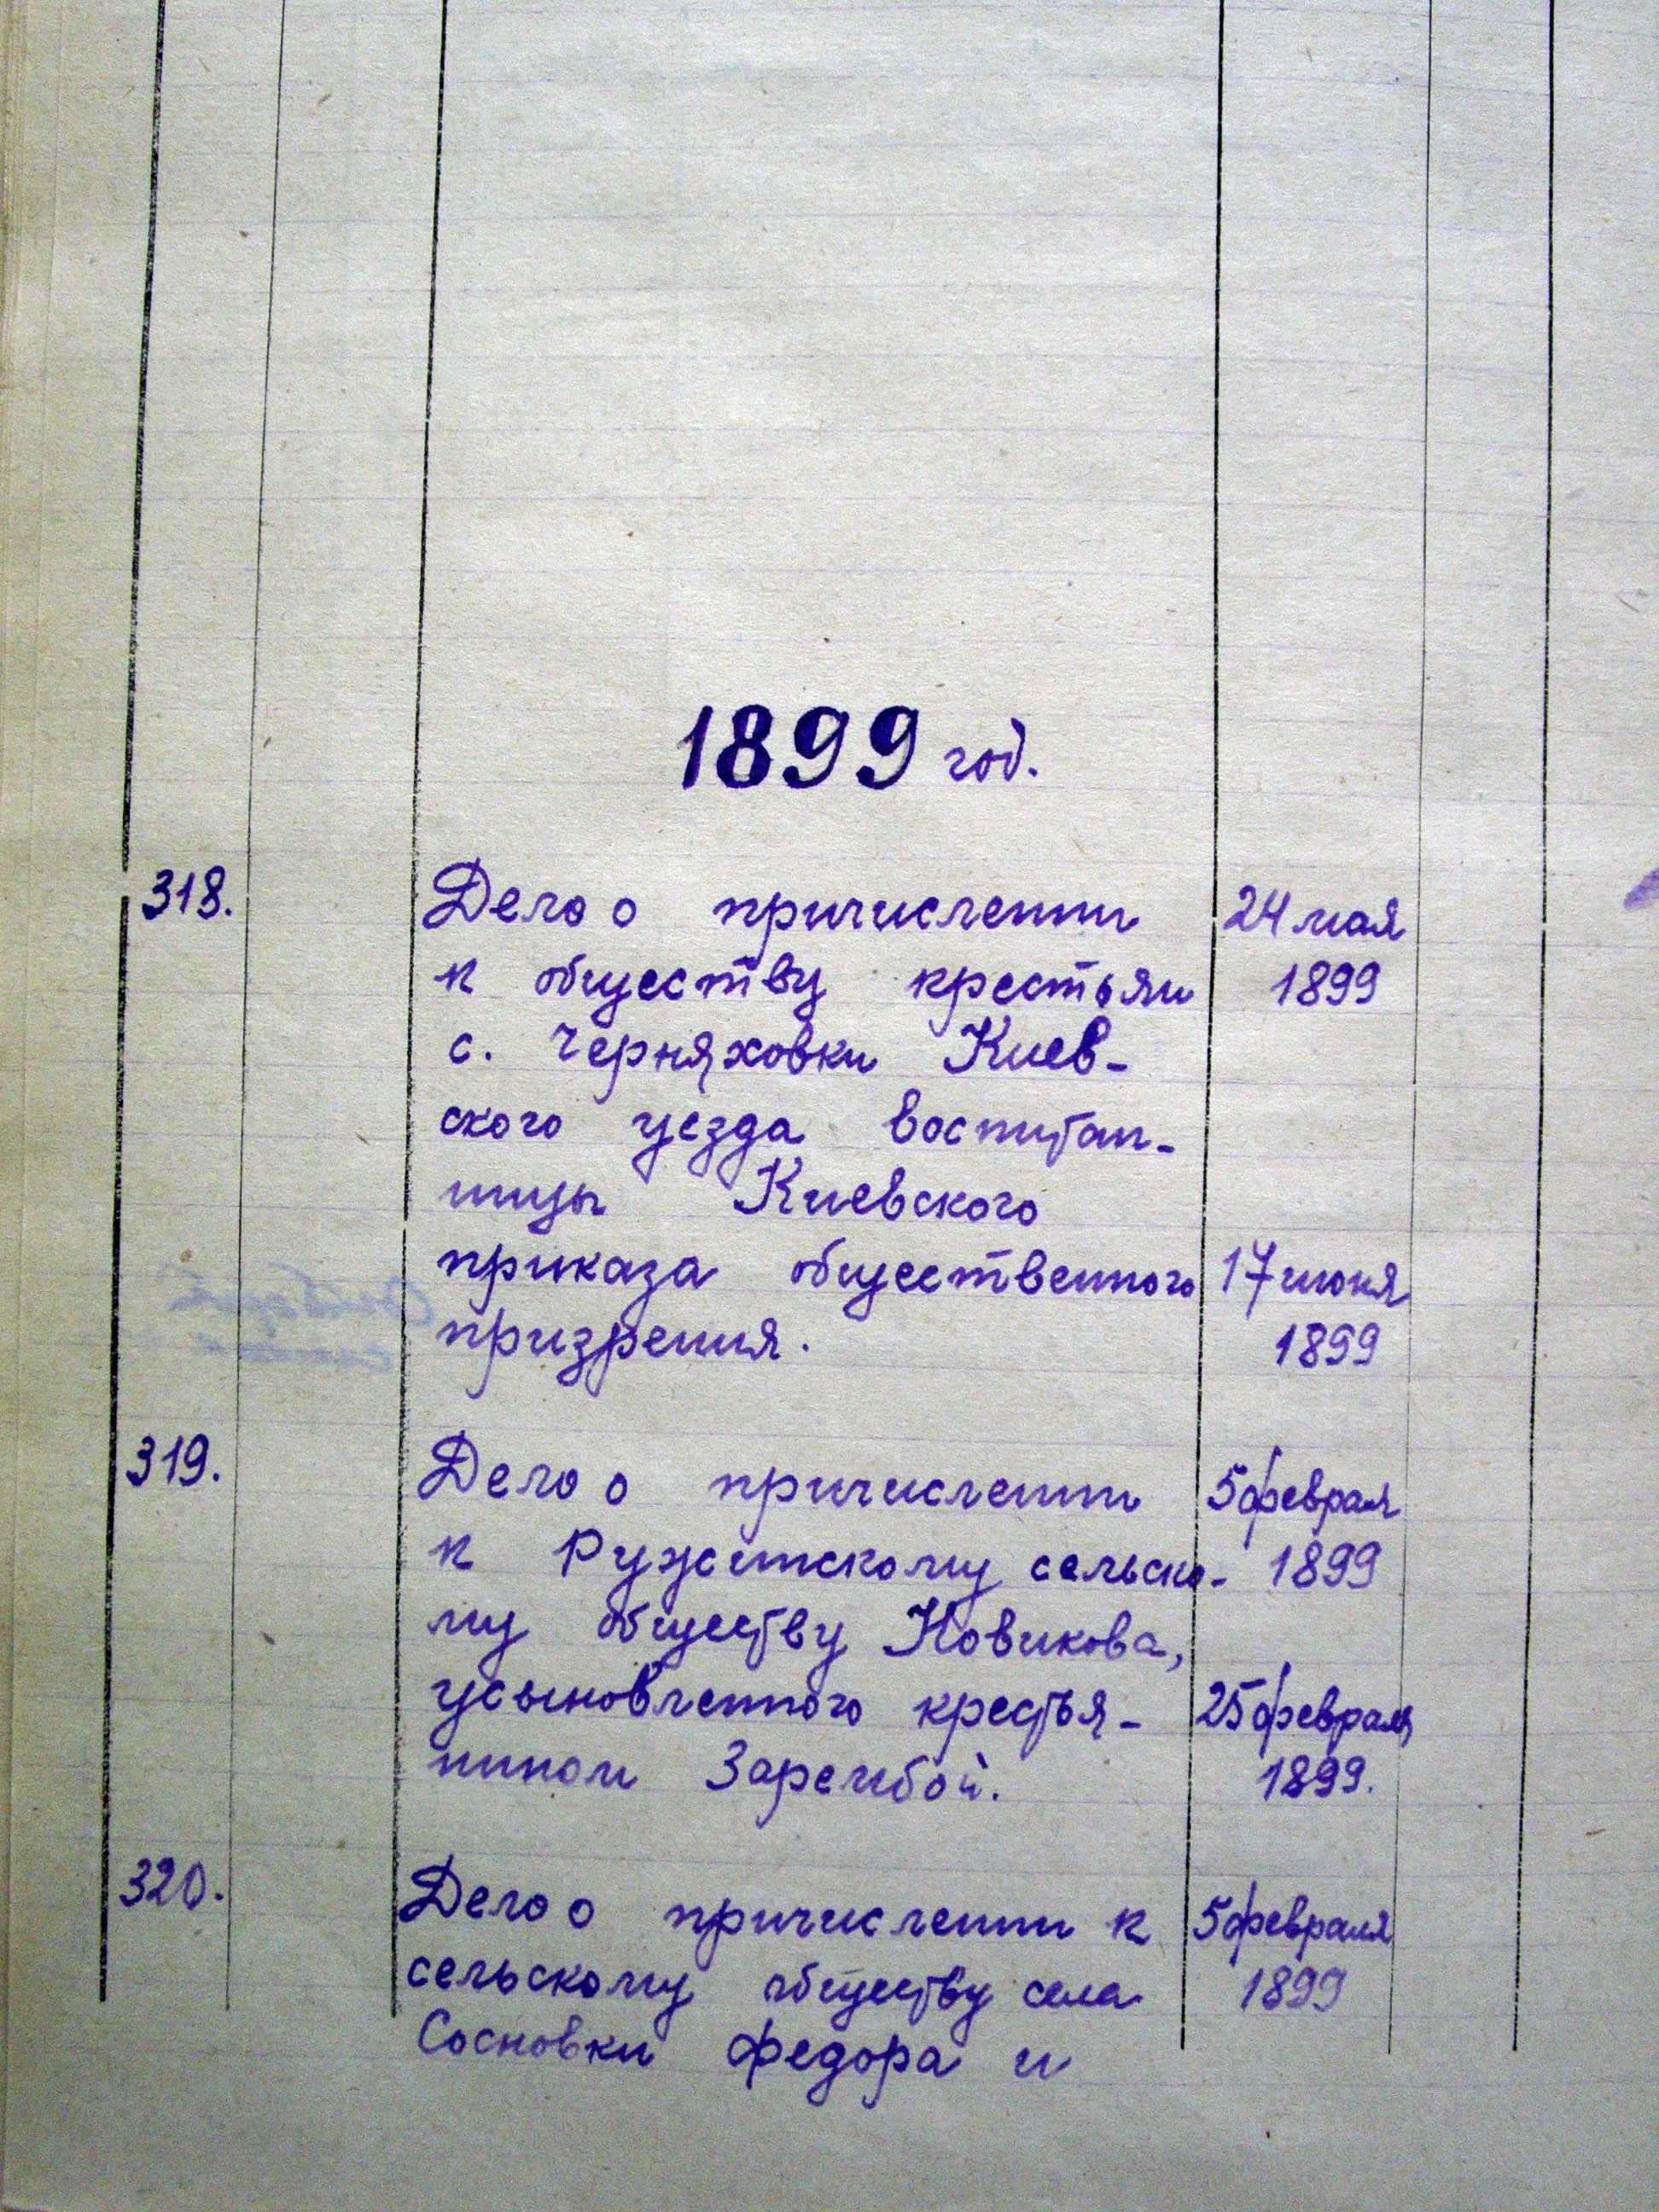 1899 год.
318. Дело о причислении 24 мая
к обществу крестьян 1899
с. Черняховки Киев-
ского уезда воспитан-
ницы Киевского
приказа общественного 17 июня
призрения. 1899
319. Дело о причислении 5 февраля
к Ружинскому сельско- 1899
му обществу Новикова,
усыновленного крестья- 25 февраля
нином Зарембой. 1899.
320. Дело о причислении к 5 февраля
сельскому обществу села 1899
Сосновки Федора и